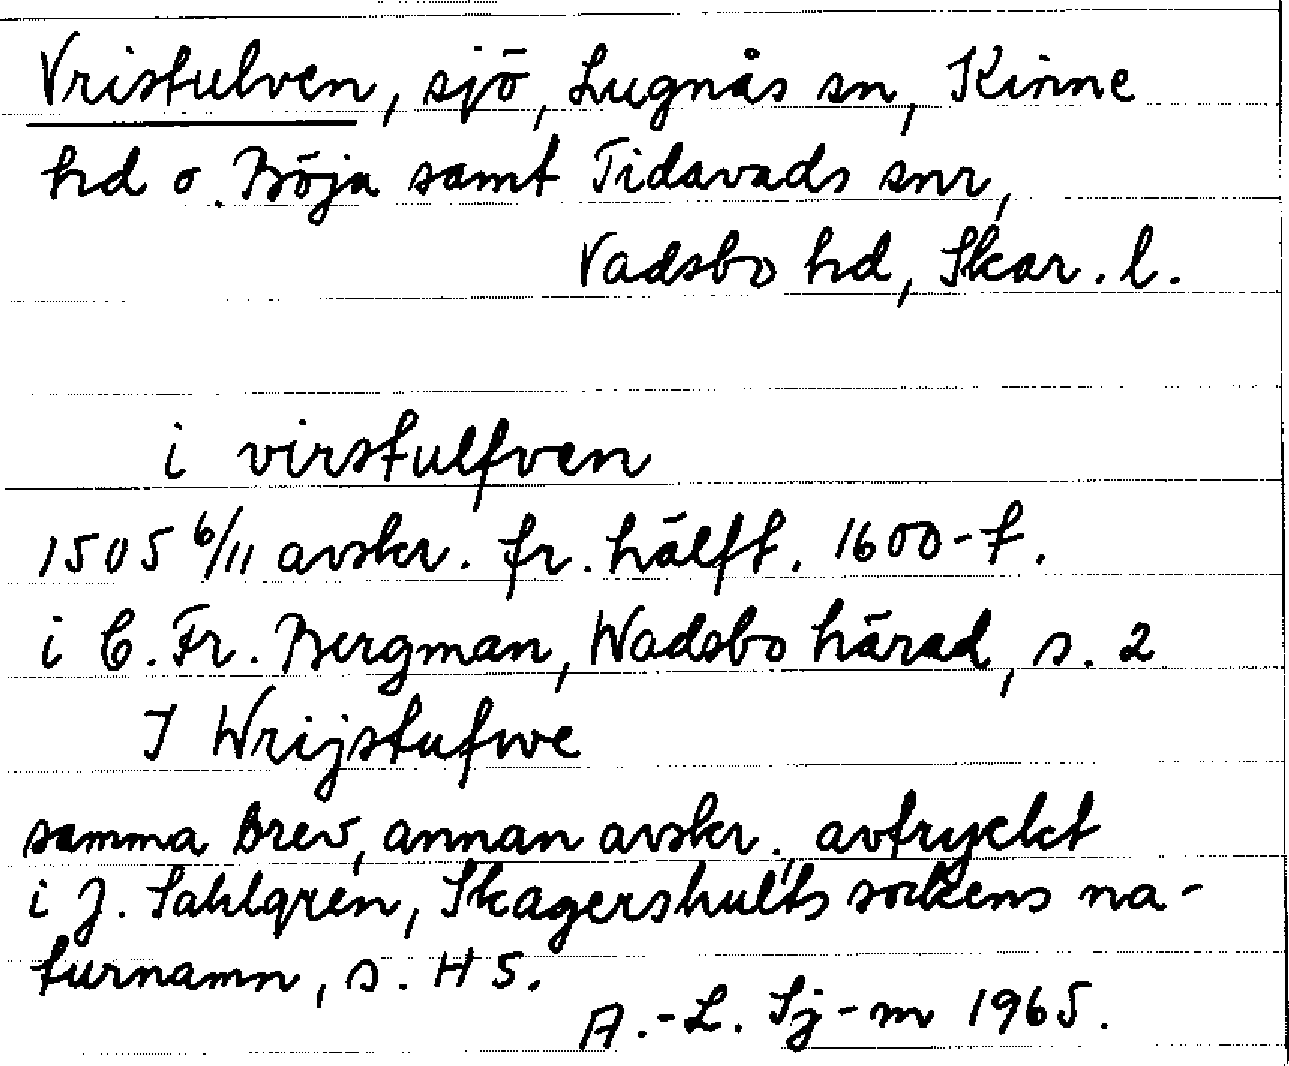 Vristulven, sjö, Lugnås sn, Kinne
hd o. Böja samt Tidavads snr,
Vadsbo hd, Skar. l.
i virstulfven
1505 6/11 avskr. fr. hälft. 1600-t.
i C. Fr. Bergman, Wadsbo härad, s. 2
I Wrijstufwe
samma brev, annan avskr., avtryckt
i J. Sahlgren, Skagershults sockens na-
turnamn, s. H 5.
A.-L. Sj-m 1965.